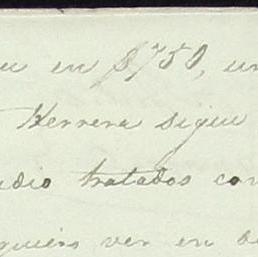 en $750, un
Herrera sigue
udio tratados con
quiera ver en